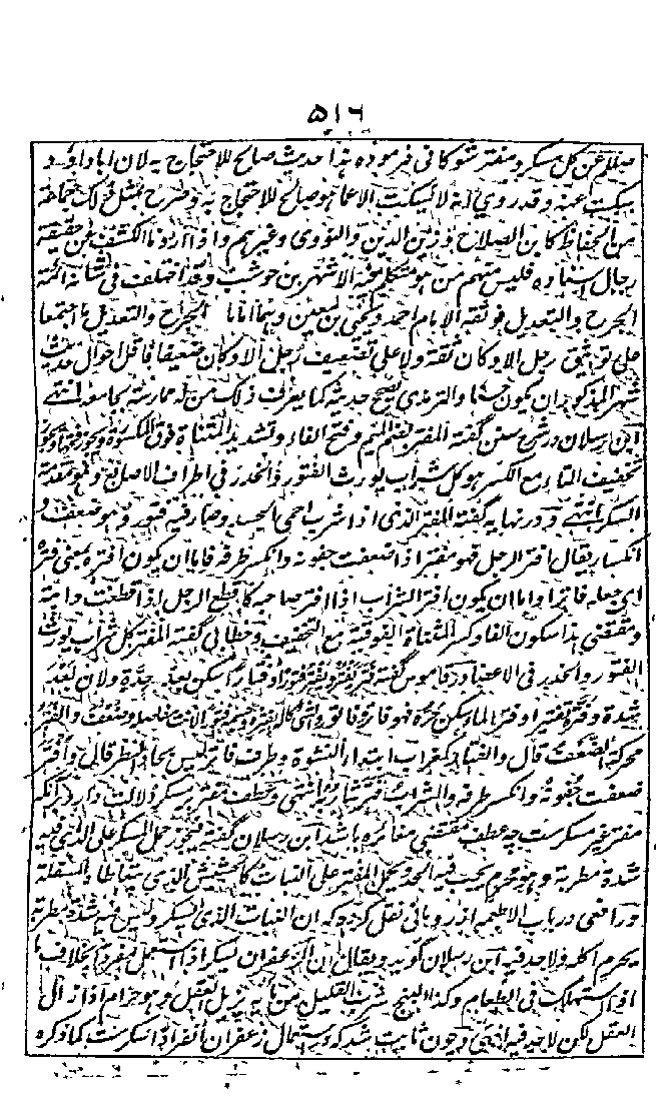 ٥١٦
صلعم عن كل مسكر ومفتر شوكانی فرموده هذا حديث صالح للاحتجاج به لان ابا داؤد
سكت عنه وقد روي انه لا يسكت الا عما هو صالح للاحتجاج به وصرح بمثل ذلك جماعة
من الحفاظ كابن الصلاح وزين الدين والنووي وغيرهم واذا اردنا الكشف عن حقيقة
رجال اسناده فليس منهم من هو متكلم فيه الا شهر بن حوشب وقد اختلف في شانه ائمة
الجرح والتعديل فوثقه الامام احمد ويحيى بن معين وهما اماما الجرح والتعديل ما اجتمعا
على توثيق رجل الا وكان ثقة ولا على تضعيف رجل الا وكان ضعيفا فاقل احوال حديث
شهر المذكور ان يكون حسنا والترمذي يصحح حديثه كما يعرف ذلك من له ممارسة بجامعه انتهى
ابن رسلان در شرح سنن گفته المفتر بضم الميم وفتح الفاء وتشديد المثناة فوق المكسورة ويجوز
تخفيف التاء مع الكسر هو كل شراب يورث الفتور والخدر في اطراف الاصابع وهو مقدمة
السكر انتهى ودر نهايه گفته المفتر الذي اذا شرب احمى الجسد وصار فيه فتور وهو ضعف و
انكسار يقال افتر الرجل فهو مفتر اذا ضعفت جفونه وانكسر طرفه فاما ان يكون افتره بمعنى فتره
اي جعله فاترا واما ان يكون افتر الشراب اذا افتر صاحبه كاقطف الرجل اذا قطفت دابته
ومقتضى هذا سكون الفاء وكسر المثناة الفوقية مع التخفيف وخطابي گفته المفتر كل شراب يورث
الفتور والخدر في الاعضاء ودر قاموس گفته فتر يفتر ويفتر فتورا وفتارا سكن بعد حدة ولان بعد
شدة وفتره تفتيرا وفتر الماء سكن حره فهو فاتر
محركة الضعف قال والفتار كغراب ابتداء النشوة وطرف فاتر ليس بحاد النظر
ضعفت جفونه وانكسر طرفه والشراب فتر شاربه انتهى وعطف مفتر بر مسكر دلالت دارد برآنكه
مفتر غير مسكرست چه عطف مقتضى مغائرة باشد ابن رسلان گفته فيجوز حمل المسكر على الذي فيه
شدة مطربة وهو محرم يجب فيه الحد ويحمل المفتر على النبات كالحشيش الذي يتعاطاه السفلة
ورافعى در باب الاطعمه از رويانى نقل كرده كه ان النبات الذي يسكر وليس فيه شدة مطربة
يحرم اكله ولا حد فيه ابن رسلان گويد ويقال ان الزعفران يسكر اذا استعمل مفردا بخلاف ما
اذا استهلك في الطعام وكذا البنج شرب القليل من مائه يزيل العقل وهو حرام اذا زال
العقل لكن لا حد فيه انتهى وچون ثابت شد كه استعمال زعفران انفرادا مسكرست كما ذكره